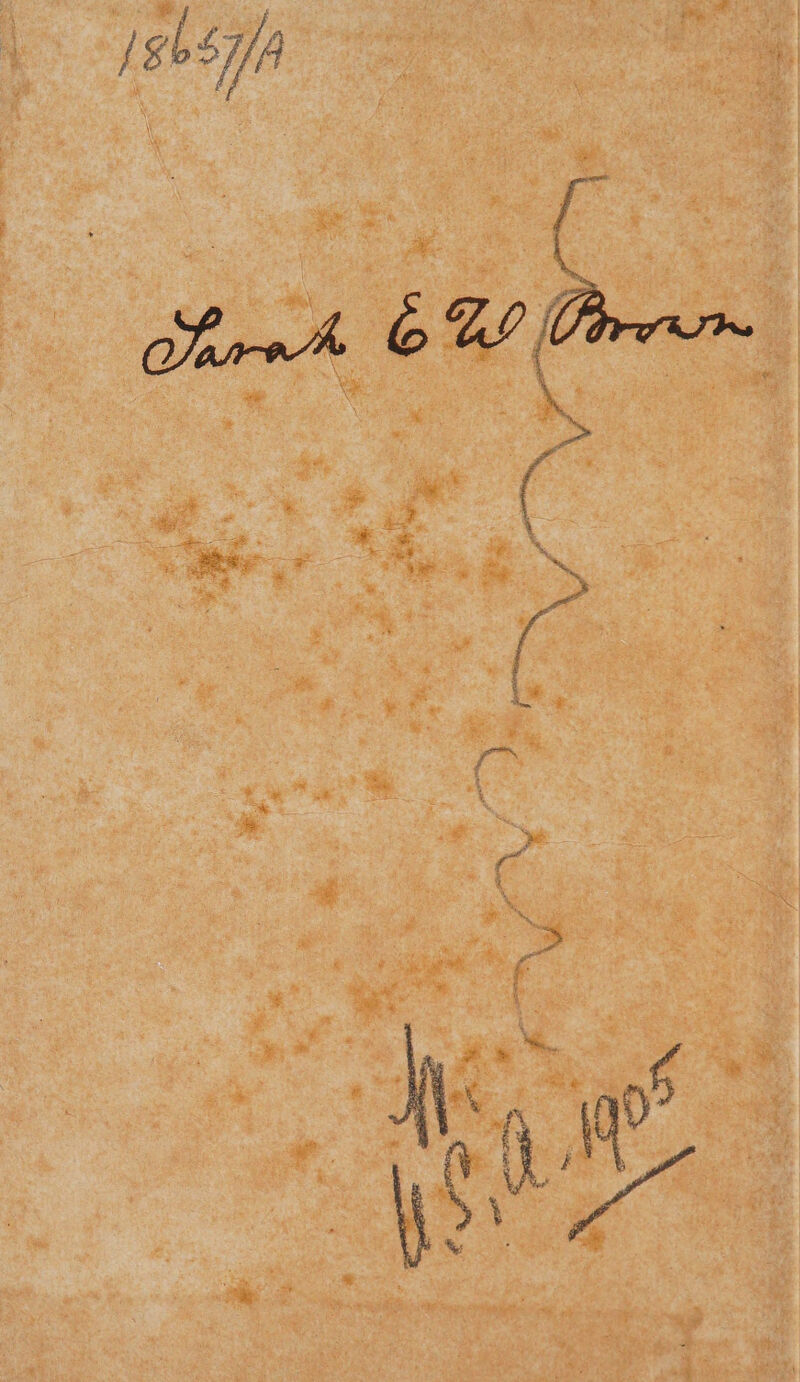 18657/A
Sarah E W Brown
U.S.A. 1905